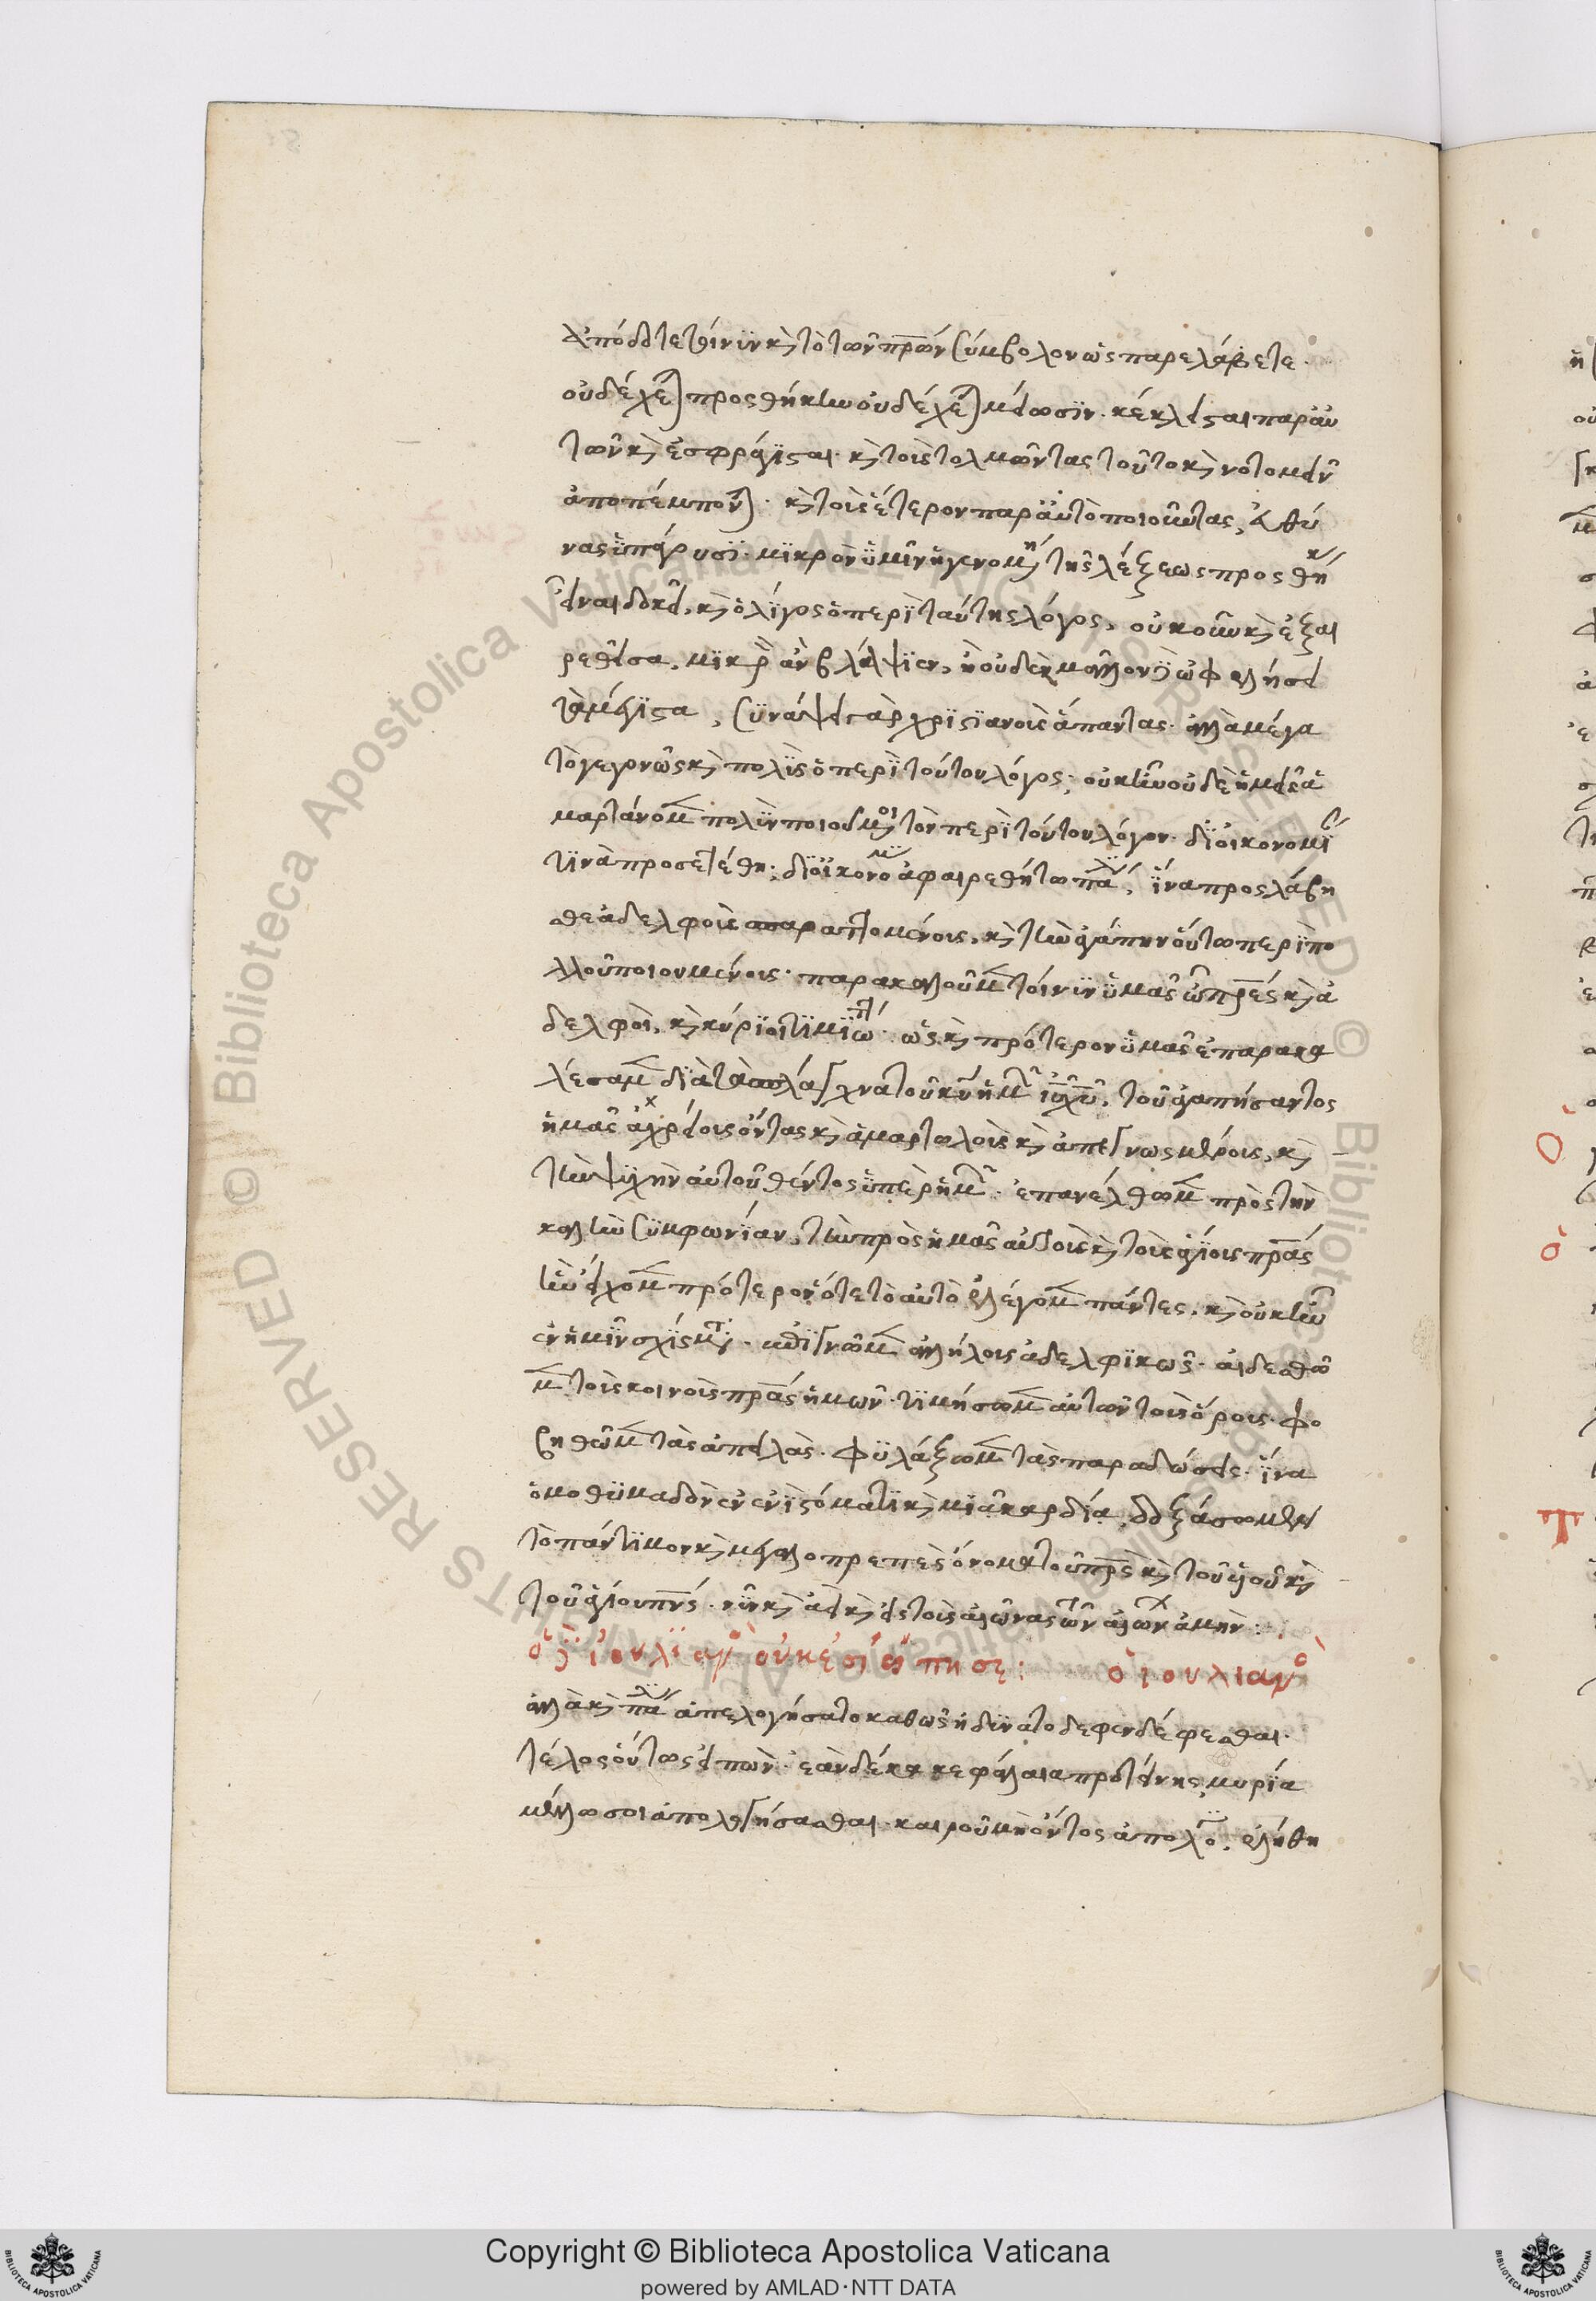 ἀπόδοτε τοίνυν κ̀ τὸ τῶν πρων σύμβολον ὡς παρελάβετε·
οὐ δέχεται προσθήκην οὐ δέχεται μείωσιν. κέκλεισται παρ' αὐ
τῶν κ̀ ἐσφράγισται. κ̀ τοὺς τολμῶντας τοῦτο καινοτομεῖν
ἀποπέμπονται. κ̀ τοὺς ἕτερον παρ' αὐτὸ ποιοῦντας, εὐθύ
νας ὑπάγουσι. μικρὸν ὑμῖν ἡ γενομένη τῆς λέξεως προσθήκη
εἶναι δοκεῖ, κ̀ ὀλίγος ὁ περὶ ταύτης λόγος, οὐκοῦν κ̀ ἐξαι
ρεθεῖσα, μικρὰ ἂν βλάψιεν, ἢ οὐδὲν μᾶλλον δὲ ὠφελήσει
τὰ μέγιστα, συνάψει γὰρ χριστιανοὺς ἅπαντας. ἀλλὰ μέγα
τὸ γεγονὼς κ̀ πολὺς ὁ περὶ τούτου λόγος; οὐκοῦν οὐδὲ ἡμεῖς ἁ
μαρτάνομεν πολὺν ποιούμενοι τὸν περὶ τούτου λόγον. δι' οἰκονομί
τινὰ προσετέθη; δι' οἰκονο ἀφαιρεθήτω πα, ἵνα προσλάβη
σθε ἀδελφοὺς σπαραττομένους, κ̀ τὴν ἀγάπην οὕτω περὶ πο
λλοῦ ποιουμένους. παρακαλοῦμεν τοίνυν ὑμᾶς ὦ πρες κ̀ ἀ
δελφοὶ, κ̀ κύριοι τιμιώτ. ὡς κ̀ πρότερον ὑμᾶς ἐπαρακα
λέσαμεν διὰ τὰ σπλάγχνα τοῦ κυ ἡμῶν ιυ χυ, τοῦ ἀγαπήσαντος
ἡμᾶς ἀχρείους ὄντας κ̀ ἁμαρτωλοὺς κ̀ ἀπεγνωσμένους, κ̀
τὴν ψυχὴν αὐτοῦ θέντος ὑπὲρ ἡμῶν. ἐπανέλθωμεν πρὸς τὴν
καλὴν συμφωνίαν, τὴν πρὸς ἡμᾶς αὐτοὺς κ̀ τοὺς ἁγίους πρας
ἣν εἴχομεν πρότερον ὅτε τὸ αὐτὸ ἐλέγομεν πάντες, κ̀ οὐκ ἦν
ἐν ἡμῖν σχίσμα. ἐπιγνῶμεν ἀλλήλους ἀδελφικῶς. αἰδεσθῶ
μεν τοὺς κοινοὺς πρας ἡμῶν. τιμήσωμεν αὐτῶν τοὺς ὅρους. φο
βηθῶμεν τὰς ἀπειλὰς. φυλάξωμεν τὰς παραδώσεις. ἵνα
ὁμοθυμαδὸν ἐν ἑνὶ στόματι κ̀ μιᾶ καρδία, δοξάσωμεν
τὸ πάντιμον κ̀ μεγαλοπρεπὲς ὄνομα τοῦ πρς κ̀ τοῦ υἱοῦ κ̀
τοῦ ἁγίου πνς. νῦν κ̀ ἀεὶ κ̀ εἰς τοὺς αἰῶνας τῶν αἰώνων ἀμήν:
ὁ δὲ ἰουλιανὸς οὐκέτι εἴπησε: ὁ ἰουλιανὸς
ἀλλὰ κ̀ πα ἀπελογήσατο καθὼς ἠδύνατο δεφενδέφεσθαι.
τέλος οὕτως εἰπών. ἐὰν δέκα κεφάλαια προτείνης, μυρία
μέλλω σοι ἀπολογήσασθαι. καιροῦ μὴ ὄντος ἀπολο, ἐλήθη
Copyright © Biblioteca Apostolica Vaticana
powered by AMLAD·NTT DATA